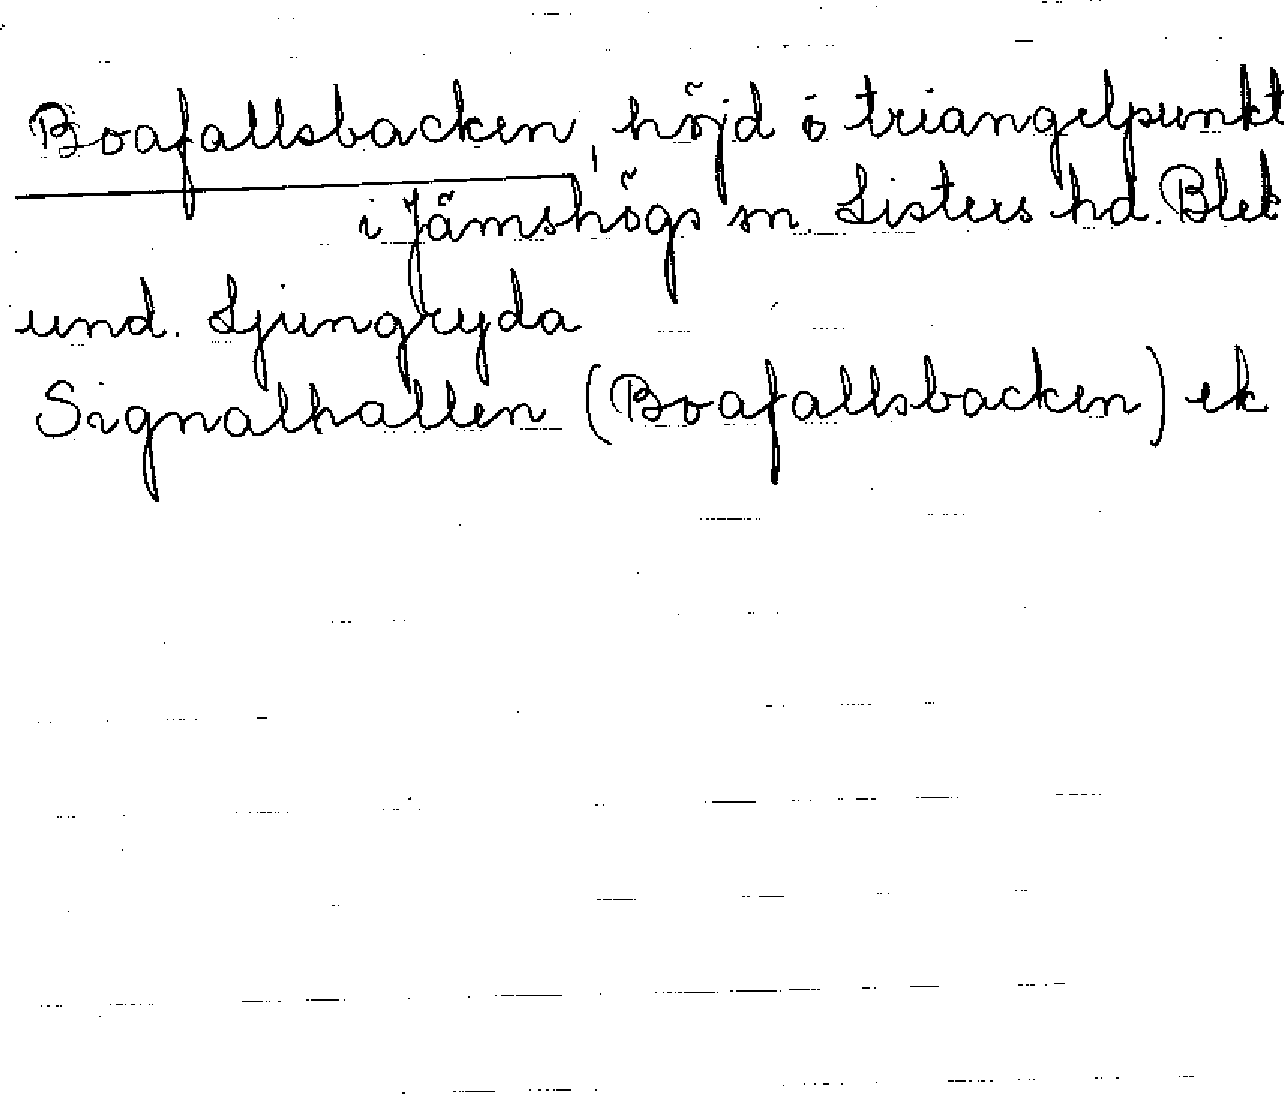 Boafallsbacken, höjd o triangelpunkt
i Jämshögs sn. Listers hd. Blek
und. Ljungryda
Signalhallen (Boafallsbacken) ek